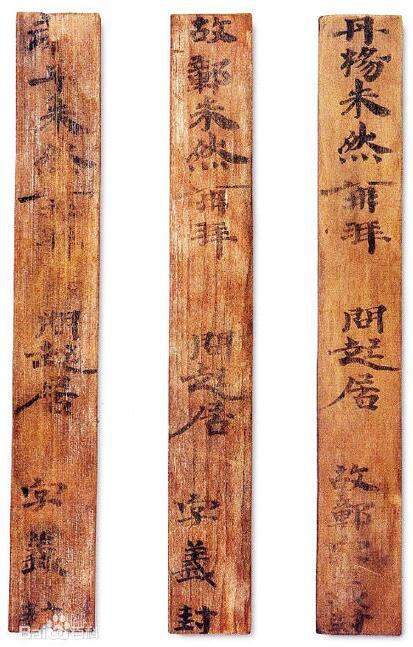 丹楊朱然再拜 問起居 故鄣字義封
故鄣朱然再拜 問起居 字義封
弟子朱然再拜 問起居 字義封
Bai百科